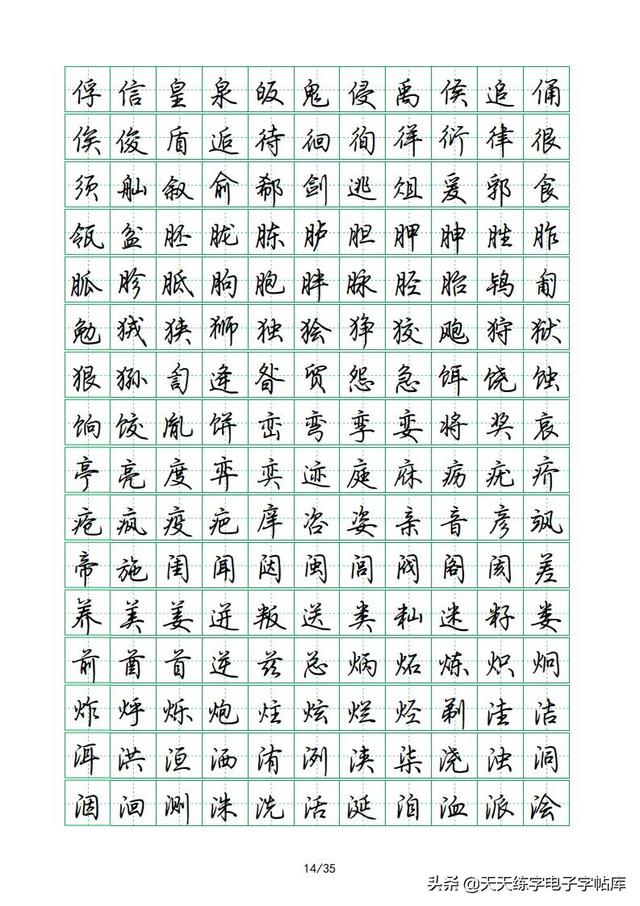 俘信皇泉皈鬼侵禹侯追俑
俟俊盾逅待徊徇徉衍律很
须舢叙俞郗剑逃俎爰郭食
瓴盆胚胧胨胪胆胛胂胜胙
胍胗胝朐胞胖脉胫胎鸨匍
勉狨狭狮独狯狰狡飑狩狱
狠狲訇逄昝贸怨急饵饶蚀
饷饺胤饼峦弯孪娈将奖哀
亭亮度弈奕迹庭庥疬疣疥
疮疯疫疤庠咨姿亲音彦飒
帝施闺闻闼闽闾阀阁阂差
养美姜迸叛送类籼迷籽娄
前酋首逆兹总炳炻炼炽炯
炸烀烁炮炷炫烂烃剃洼洁
洱洪洹洒洧洌浃柒浇浊洞
洇洄测洙洗活涎洎洫派浍
14/35
头条 @天天练字电子字帖库